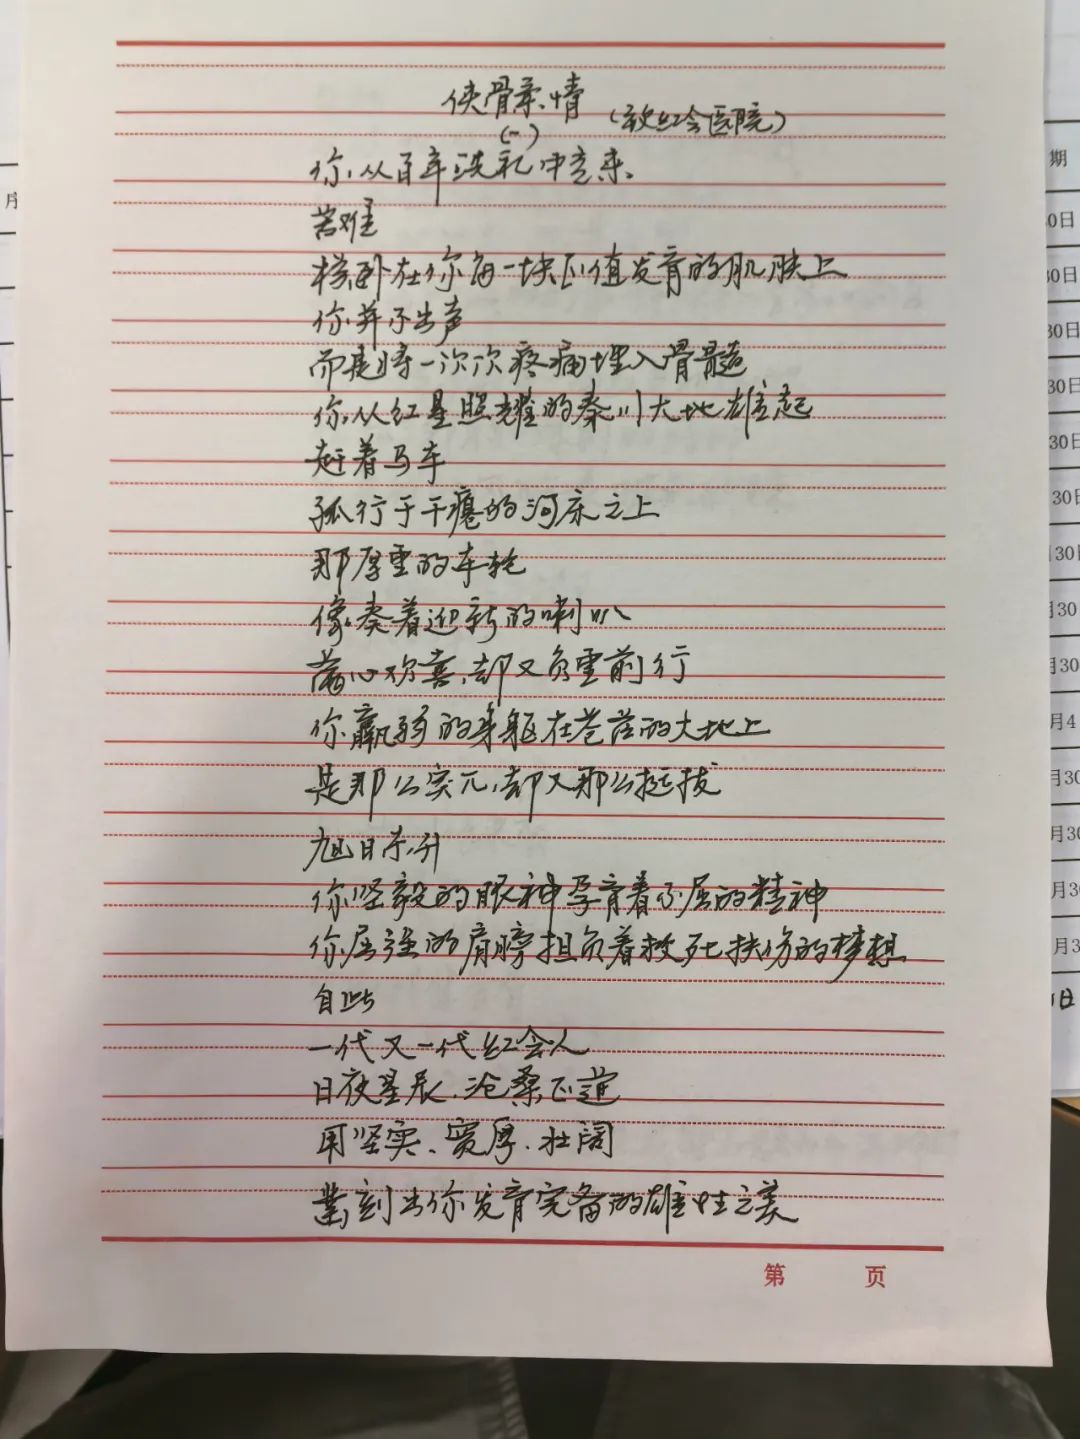 侠骨柔情
(致红会医院)
(一)
你,从百年洗礼中走来、
苦难
横卧在你每一块正值发育的肌肤上
你并不出声
而是将一次次疼痛埋入骨髓
你,从红星照耀的秦川大地雄起
赶着马车
孤行于干瘪的河床之上
那厚重的车轮
像奏着迎新的喇叭
满心欢喜,却又负重前行
你羸弱的身躯在苍茫的大地上
是那么突兀,却又那么挺拔
旭日东升
你坚毅的眼神孕育着不屈的精神
你屈强的肩膀担负着救死扶伤的梦想
自此
一代又一代红会人
日夜星辰,沧桑正道
用坚实、宽厚、壮阔
凿刻出你发育完备的雄性之美
第 页
期
序
30日
30日
30日
30日
30日
月30
月30
月4
月30
月30
月30
月3
日